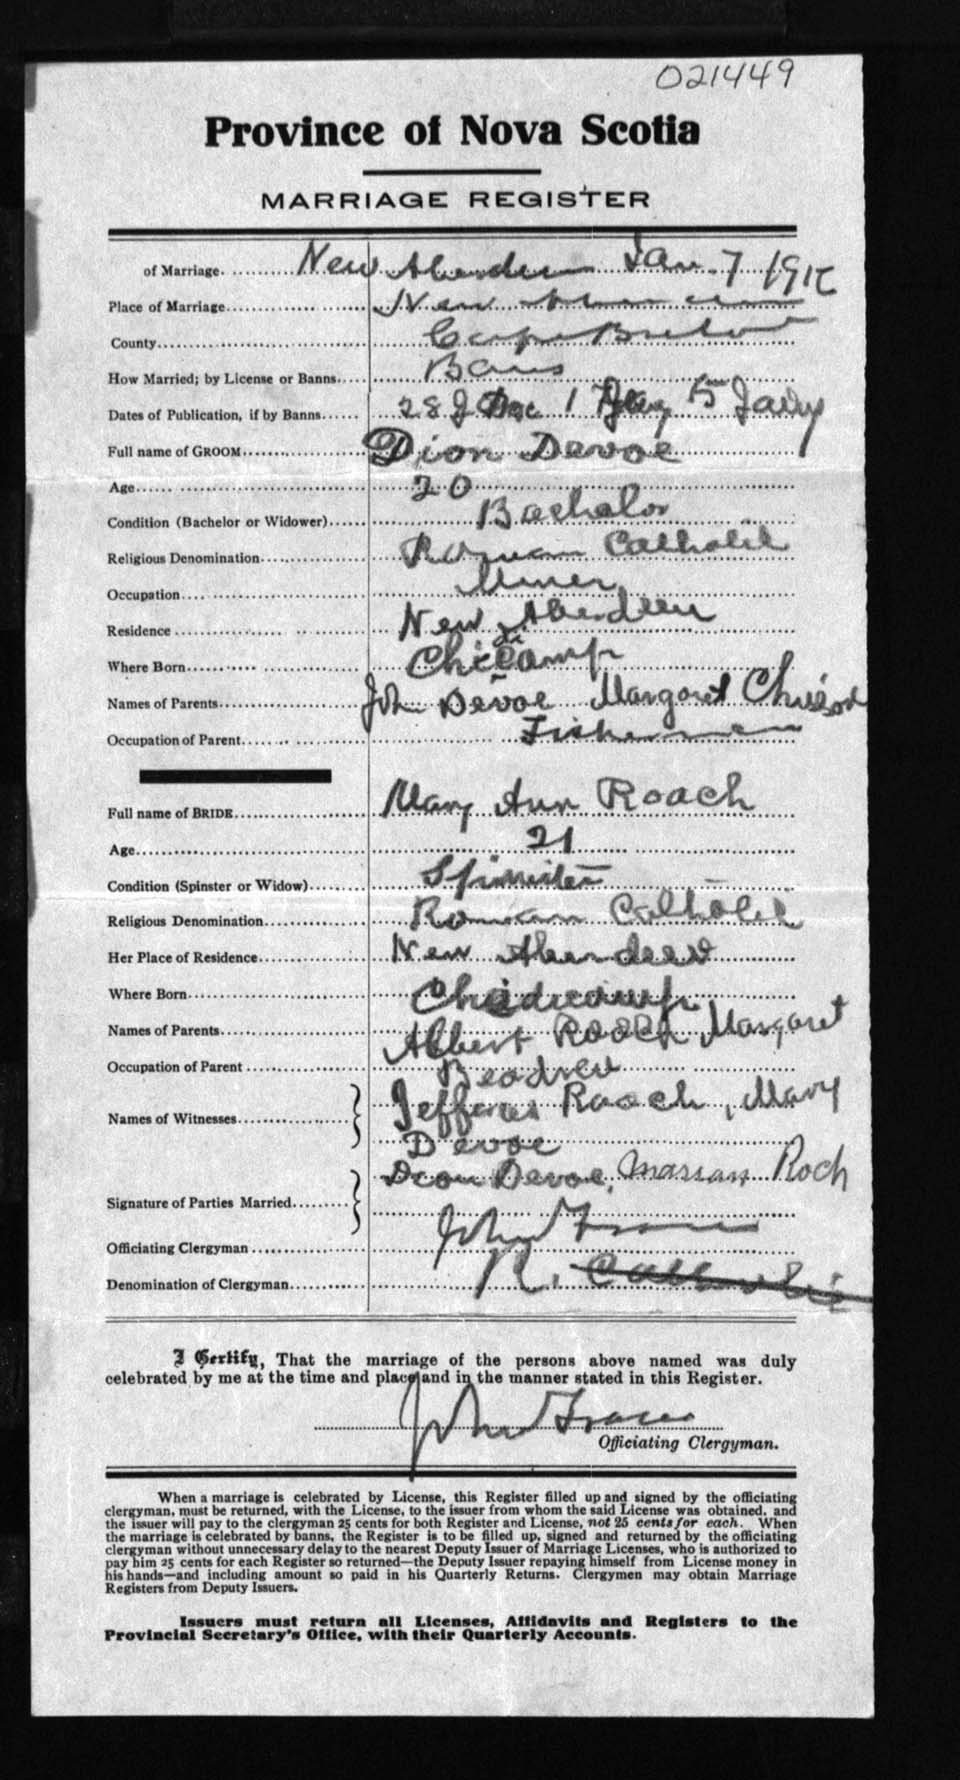 021449
Province of Nova Scotia
MARRIAGE REGISTER
of Marriage New Aberdeen Jan. 7 191
Place of Marriage New
County Cape Breton
How Married; by License or Banns Bans
Dates of Publication, if by Banns 28 Dec 1 5
Full name of GROOM Dion Devoe
Age 20
Condition (Bachelor or Widower) Bachelor
Religious Denomination Roman Catholic
Occupation Miner
Residence New Aberdeen
Where Born
Names of Parents John Devoe Margaret
Occupation of Parent Fisherman
Full name of BRIDE Mary Ann Roach
Age 21
Condition (Spinster or Widow) Spinister
Religious Denomination Roman Catholic
Her Place of Residence New Aberdeen
Where Born
Names of Parents Albert Roach, Margaret
Occupation of Parent
Names of Witnesses Roach, Mary
Devoe
Signature of Parties Married Dion Devoe, Roch
Officiating Clergyman John Fraser
Denomination of Clergyman R. Catholic
I Certify, That the marriage of the persons above named was duly
celebrated by me at the time and place and in the manner stated in this Register.
John Fraser
Officiating Clergyman.
When a marriage is celebrated by License, this Register filled up and signed by the officiating
clergyman, must be returned, with the License, to the issuer from whom the said License was obtained, and
the issuer will pay to the clergyman 25 cents for both Register and License, not 25 cents for each. When
the marriage is celebrated by banns, the Register is to be filled up, signed and returned by the officiating
clergyman without unnecessary delay to the nearest Deputy Issuer of Marriage Licenses, who is authorized to
pay him 25 cents for each Register so returned—the Deputy Issuer repaying himself from License money in
his hands—and including amount so paid in his Quarterly Returns. Clergymen may obtain Marriage
Registers from Deputy Issuers.
Issuers must return all Licenses, Affidavits and Registers to the
Provincial Secretary's Office, with their Quarterly Accounts.